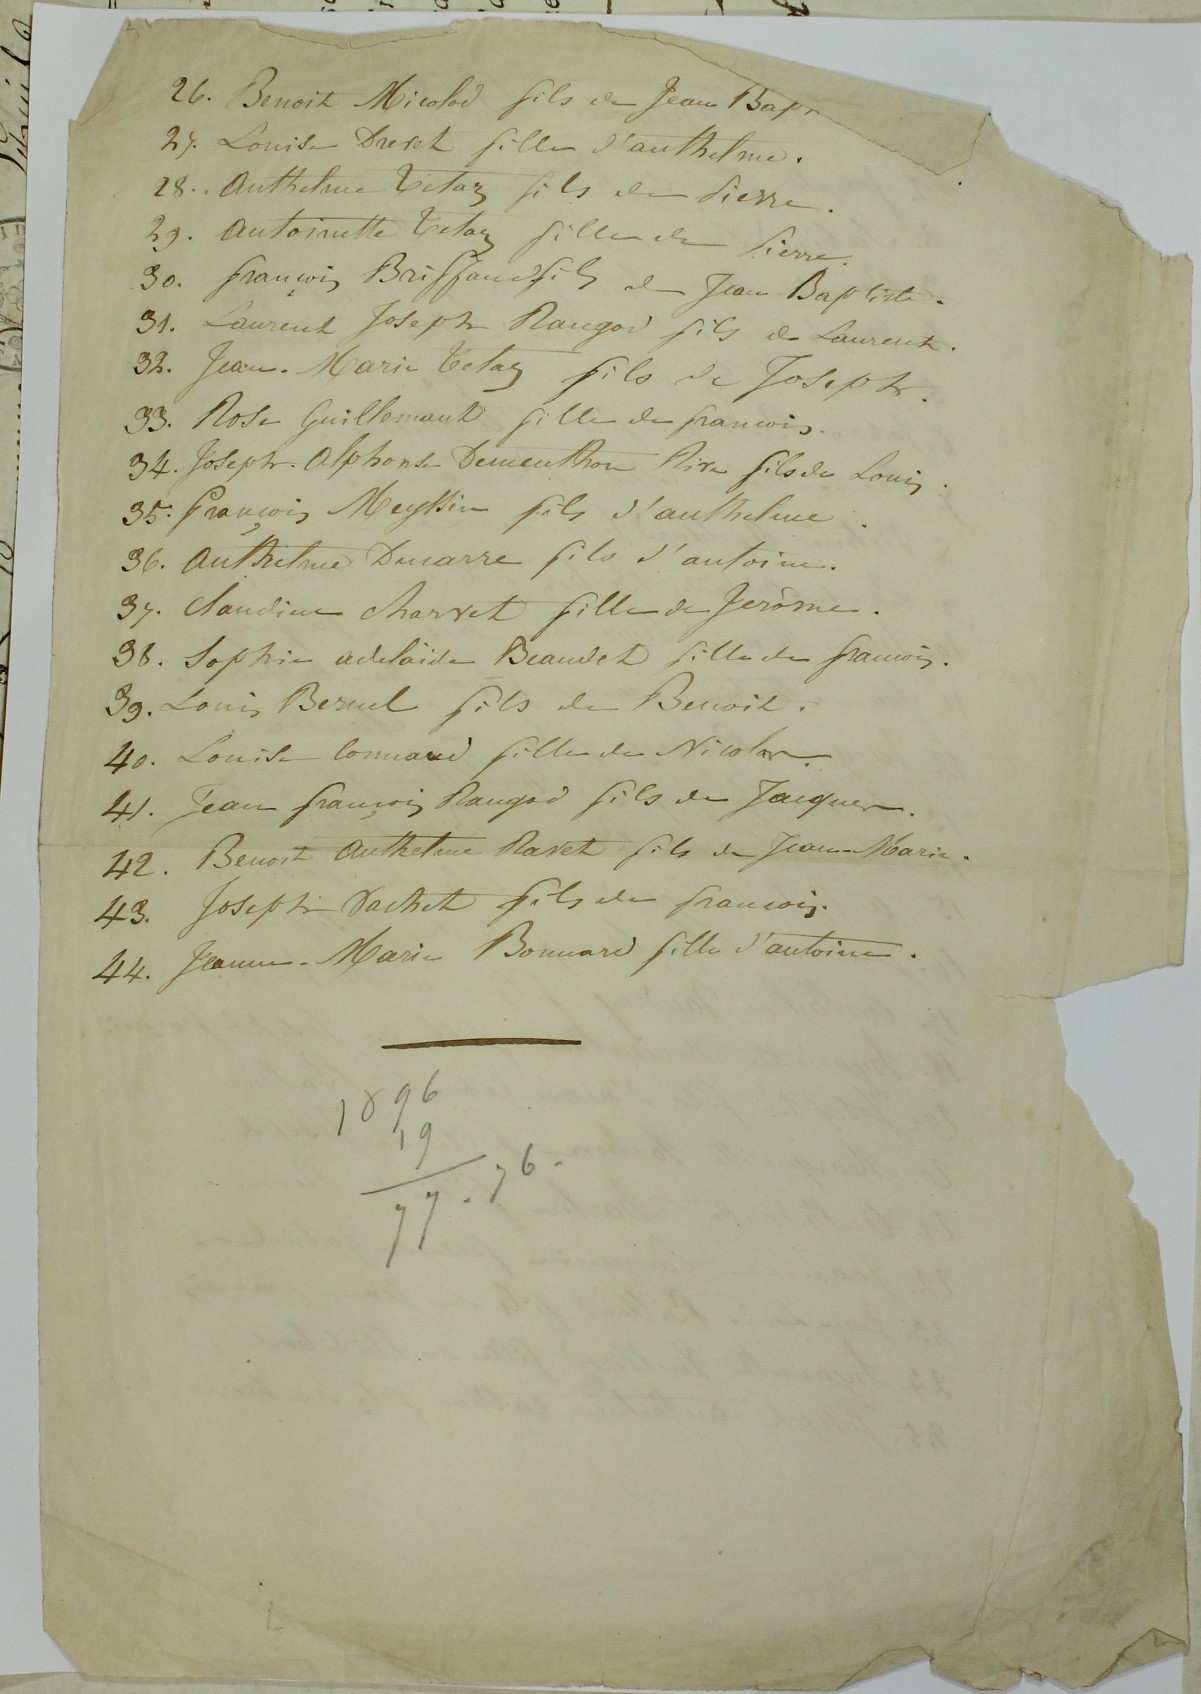 26. Benoit Micolod fils de Jean Bap
27. Louise Drevet fille d'anthelme.
28. Anthelme Tetaz fils de Pierre.
29. Antoinette Tetaz fille de Pierre.
30. françois Briffaud fils de Jean Baptiste.
31. Laurent Joseph Rangod fils de Laurent.
32. Jean-Marie Tetaz fils de Joseph.
33. Rose Guillemaut fille de francois.
34. Joseph-Alphonse Dementhon Rive fils de Louis.
35. françois Meyssin fils d'anthelme.
36. Anthelme Ducarre fils d'antoine.
37. Claudine Charvet fille de Jerôme.
38. Sophie adelaïde Beaudet fille de francois.
39. Louis Bernel fils de Benoit.
40. Louise Connard fille de Nicolas.
41. Jean françois Rangod fils de Jacques.
42. Benoit Anthelme Ravet fils de Jean Marie.
43. Joseph Vachet fils de francois.
44. Jeanne-Marie Bonnard fille d'antoine.
1896
19
77.76.